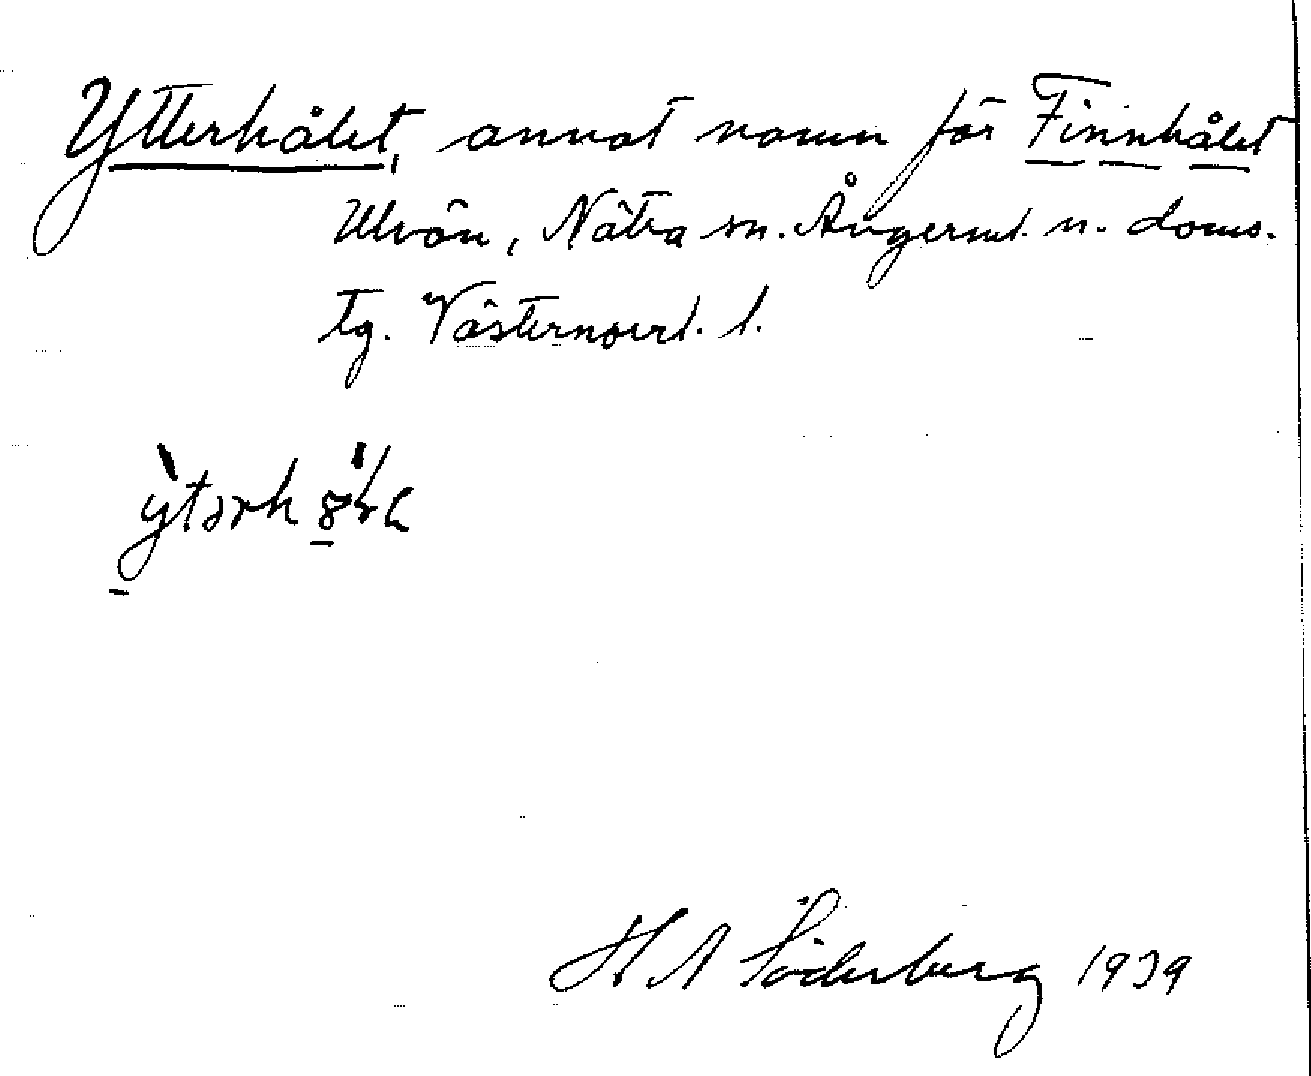 Ytterhålet, annat namn för Finnhålet
Ulvön, Nätra sn. Ångerml. n. doms.
tg. Västernorrl. l.
H A Söderberg 1939